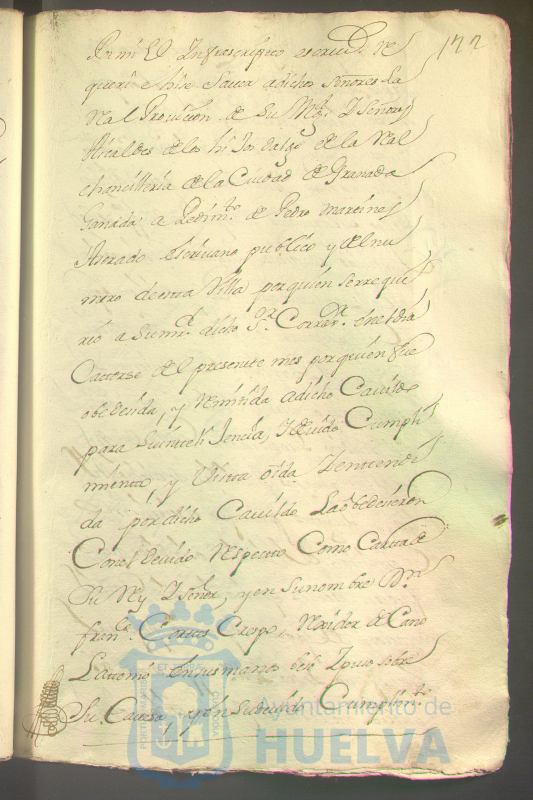 122
Por mí el Infrascripto escriv.º re
querí e hise saver a dichos señores la
Real Provicion de Su Mg.d y Señores
Alcaldes de los hijos dalgo de la Real
chancilleria de la Ciudad de Granada
Ganada a Pedim.to de Pedro Martines
Escrivano publico y del nu
mero de esta Villa por quien se reque
rió a su md. dicho S.or Correx.r en el dia
Catorse del presente mes por quien fue
obedesida, y Remitida a dicho Cavildo
para su intelijencia, y devido Cumpli
miento, y Vista oida y entendi
da por dicho Cavildo la obedesieron
Con el devido respecto Como Carta de
Su Rey y Señor, y en su nombre D.n
fran.co Cortes Crespo Rexidor de Cano
La tomó en sus manos besó y puso sobre
Su Cavesa, y en su devido Cumplim.to
Ayuntamiento de
HUELVA